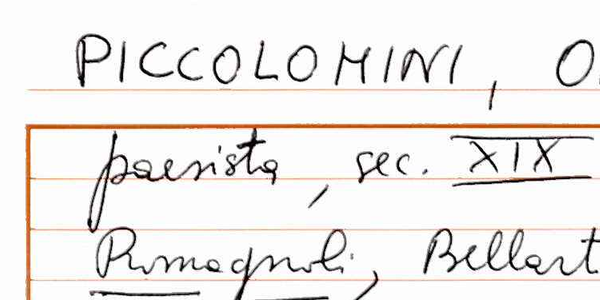 PICCOLOMINI, O
paesista, sec. XIX
Romagnoli, Bellart